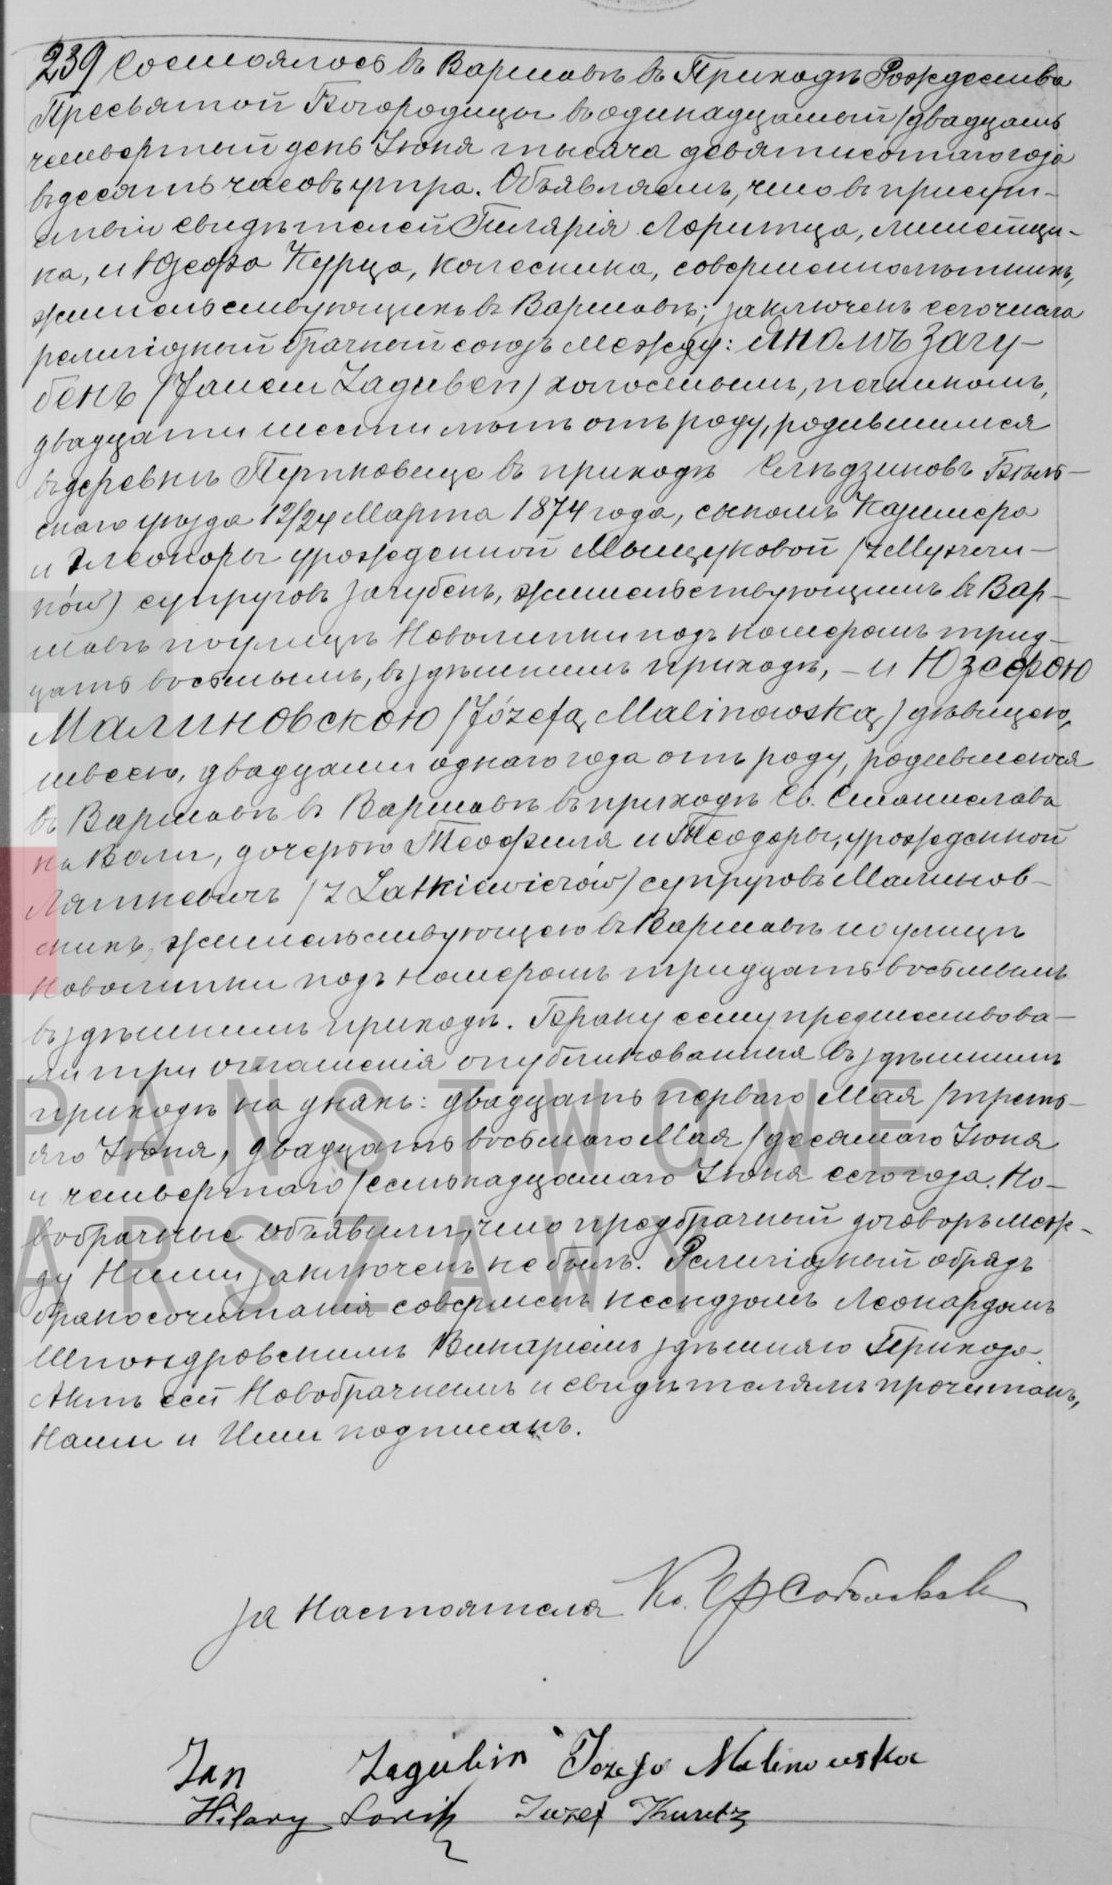 239 Состоялось въ Варшавѣ въ Приходѣ Рождества
Пресвятой Богородицы въ одинадцатый /двадцать
четвертый день Іюня тысяча девятисотаго года
въ десять часовъ утра. Объявляемъ, что въ присут-
ствіи свидѣтелей Гилярія Лоритца,
ка, и Юзефа Курца, колесника, совершеннолѣтнихъ,
жительствующихъ въ Варшавѣ; заключенъ сего числа
религіозный брачный союзъ между: Яномъ Загу-
бенъ /Janem Zaguben/ холостымъ, печникомъ,
двадцати шести лѣтъ отъ роду, родившимся
въ деревнѣ въ приходѣ Бѣль-
скаго уѣзда 12/24 Марта 1874 года, сыномъ Казимера
и Элеоноры урожденной /z
ków) супруговъ Загубенъ, жительствующимъ въ Вар-
шавѣ по улицѣ Новолипки подъ номеромъ трид-
цать восьмымъ, въ здѣшнемъ приходѣ, – и Юзефою
Малиновскою /Józefą Malinowską/ дѣвицею,
швеею, двадцати одного года отъ роду, родившеюся
въ Варшавѣ въ Варшавѣ въ приходѣ Св. Станислава
на Воли, дочерью Теофиля и Теодоры, урожденной
Ляткевичъ /z Latkiewiczów/ супруговъ Малинов-
скихъ, жительствующею въ Варшавѣ по улицѣ
Новолипки подъ номеромъ тридцать восьмымъ
въ здѣшнемъ приходѣ. Браку сему предшествова-
ли три оглашенія опубликованныя въ здѣшнемъ
приходѣ на дняхъ: двадцать перваго Мая /треть-
яго Іюня, двадцать восьмаго Мая /десятаго Іюня
и четвертаго /семнадцатаго Іюня сего года. Но-
вобрачные объявили, что предбрачный договоръ меж-
ду Ними заключенъ не былъ. Религіозный обрядъ
бракосочетанія совершенъ ксендзомъ Леонардомъ
Викаріемъ здѣшняго Прихода.
Актъ сей Новобрачнымъ и свидѣтелямъ прочитанъ,
Нами и Ими подписанъ.
За Настоятеля Кс.
Jan Zagubin Jozefa Malinowska
Hilary Loritz Juzef Kuretz
PAŃSTWOWE
ARSZAWY